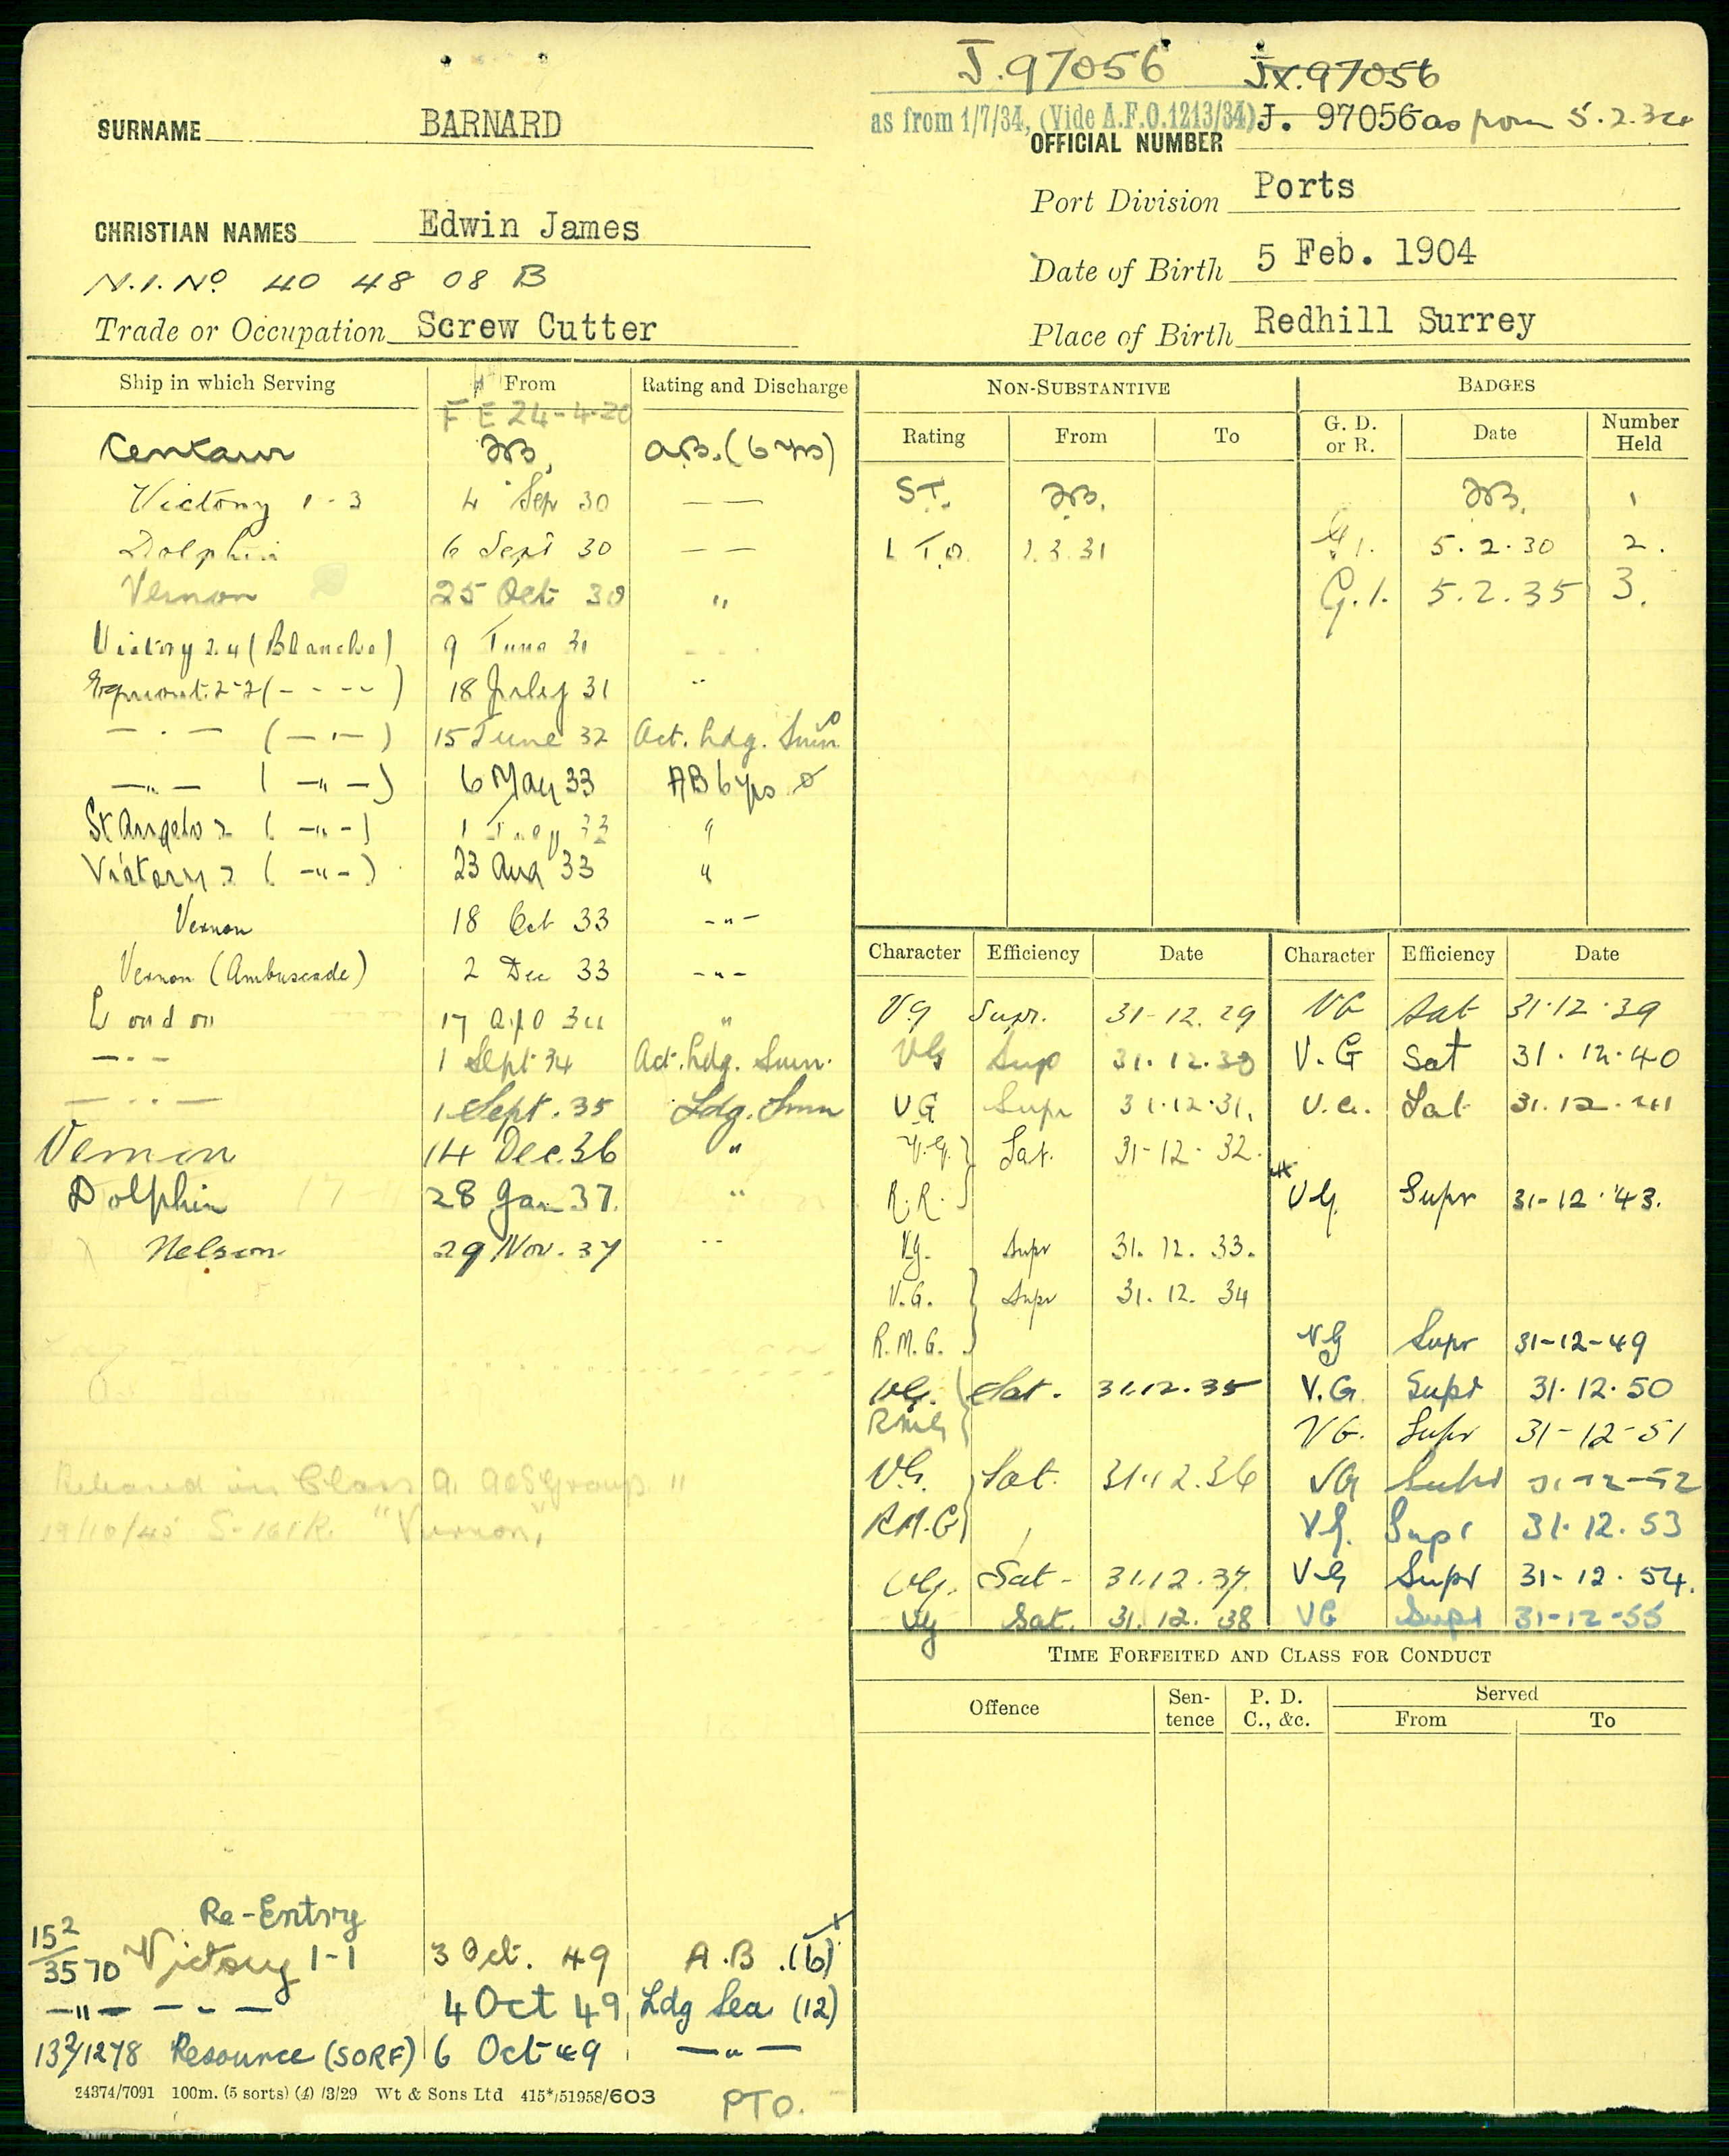 J.97056 JX.97056
as from 1/7/34, (Vide A.F.O.1213/34) J. 97056 as from 5.2.34
SURNAME BARNARD
OFFICIAL NUMBER
Port Division Ports
CHRISTIAN NAMES Edwin James
Date of Birth 5 Feb. 1904
N.I. No 40 48 08 B
Trade or Occupation Screw Cutter
Place of Birth Redhill Surrey
Ship in which Serving From Rating and Discharge
F E 24-4-20
Centaur A.B. (6 yrs)
Victory 1-3 4 Sep 30 — —
Dolphin 6 Sept 30 — —
Vernon 25 Oct 30 "
Victory 2.4 (Blanche) 9 June 31
Egmont 2-2 (- - - -) 18 July 31 "
— . — (— " —) 15 June 32 Act. Ldg. Smn
— " — ( — " —) 6 May 33 AB 6 yrs
St Angelo 2 ( — " —) 1 33 "
Victory 2 ( — " —) 23 Aug 33 "
Vernon 18 Oct 33 - " -
Vernon (Ambuscade) 2 Dec 33 - " -
London 17 Apl 34 "
— . — 1 Sept 34 Act. Ldg. Smn.
— . . — 1 Sept. 35 Ldg. Smn
Vernon 14 Dec. 36 "
Dolphin 28 Jan 37. "
Nelson 29 Nov. 37 "
Released in Class A. Group "
19/10/45 S-161R. "Vernon"
Re-Entry
152/3570 Victory 1-1 3 Oct. 49 A.B. (6)
— " — — - — 4 Oct 49 Ldg Sea (12)
132/1278 Resource (SORF) 6 Oct 49 — " —
24374/7091 100m. (5 sorts) (4) /3/29 Wt & Sons Ltd 415*/51958/603
PTO.
NON-SUBSTANTIVE
Rating From To
S.T.
L T.O. 1.3.31
BADGES
G. D. or R. Date Number Held
1
G 1. 5.2.30 2.
G.1. 5.2.35 3.
Character Efficiency Date Character Efficiency Date
VG Supr. 31-12.29 VG Sat 31.12.39
VG Sup 31.12.30 V.G Sat 31.12.40
VG Supr 31.12.31. V.G. Sat 31.12.41
V.G. Sat. 31-12-32.
R.R. VG. Supr 31-12-43.
VG. Supr 31.12.33.
V.G. Supr 31.12.34
R.M.G. VG Supr 31-12-49
VG. Sat. 31.12.35 V.G. Supr 31.12.50
RMG VG. Supr 31-12-51
VG. Sat. 31.12.36 VG Supr 31-12-52
R.M.G VG. Supr 31.12.53
VG. Sat - 31.12.37. VG Supr 31-12.54.
VG Sat. 31.12.38 VG Supr 31-12-55
TIME FORFEITED AND CLASS FOR CONDUCT
Offence Sentence P. D. C., &c. Served
From To